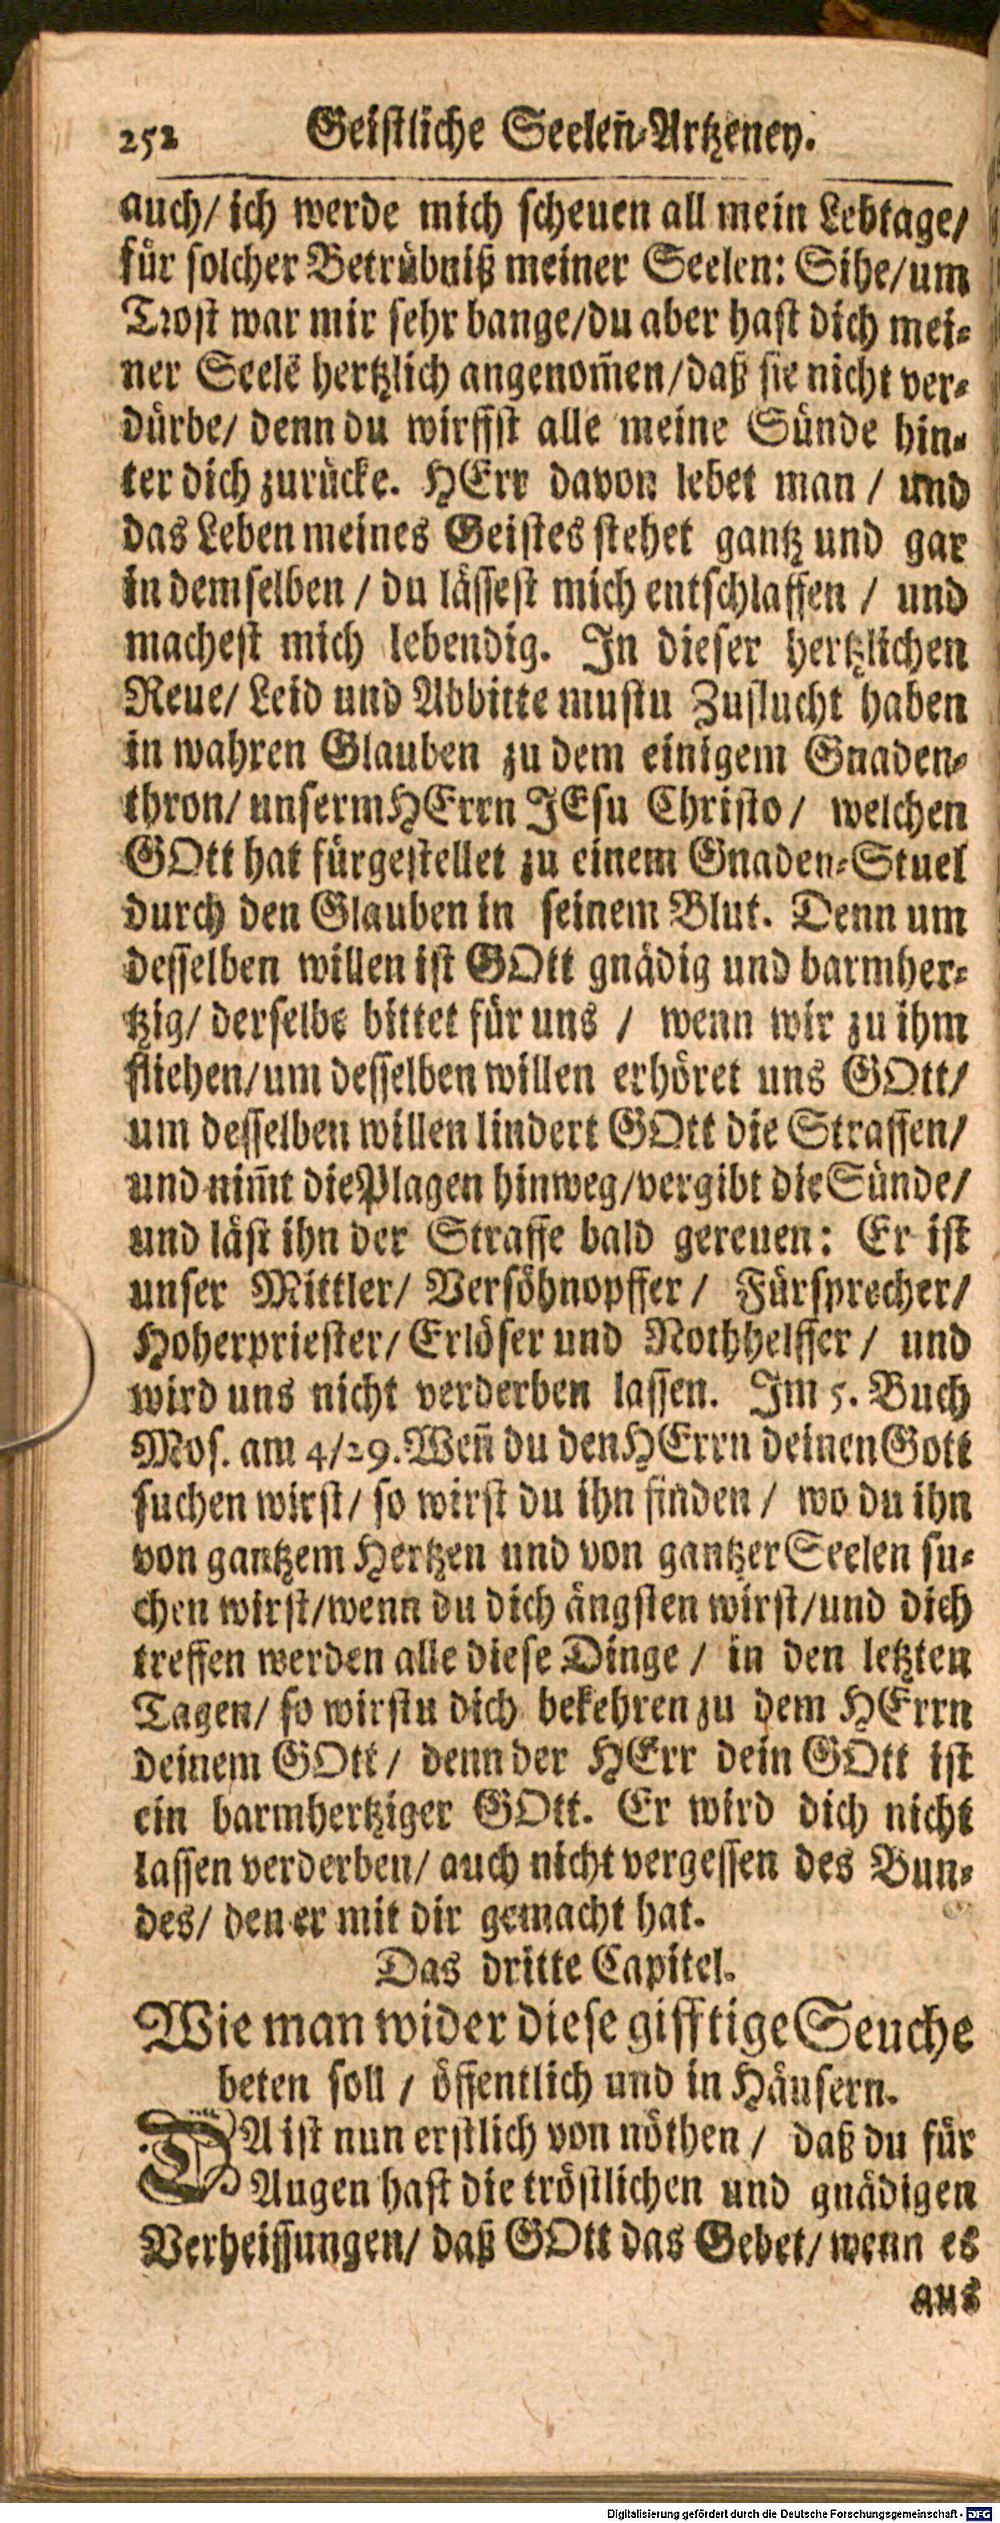 252 Geistliche Seelen̄-Artzeney.
auch/ ich werde mich scheuen all mein Lebtage/
für solcher Betrübniß meiner Seelen: Sihe/um
Trost war mir sehr bange/du aber hast dich mei-
ner Seelē hertzlich angenom̄en/daß sie nicht ver-
dürbe/ denn du wirffst alle meine Sünde hin-
ter dich zurücke. HErr davon lebet man / und
das Leben meines Geistes stehet gantz und gar
in demselben / du lässest mich entschlaffen / und
machest mich lebendig. In dieser hertzlichen
Reue/ Leid und Abbitte mustu Zuflucht haben
in wahren Glauben zu dem einigem Gnaden-
thron/ unserm HErrn JEsu Christo / welchen
GOtt hat fürgestellet zu einem Gnaden-Stuel
durch den Glauben in seinem Blut. Denn um
desselben willen ist GOtt gnädig und barmher-
tzig/ derselbe bittet für uns / wenn wir zu ihm
fliehen/um desselben willen erhöret uns GOtt/
um desselben willen lindert GOtt die Straffen/
und nim̄t die Plagen hinweg/vergibt die Sünde/
und läst ihn der Straffe bald gereuen: Er ist
unser Mittler/ Versöhnopffer / Fürsprecher/
Hoherpriester/ Erlöser und Nothhelffer / und
wird uns nicht verderben lassen. Im 5. Buch
Mos. am 4/29. Wen̄ du den HErrn deinen Gott
suchen wirst/ so wirst du ihn finden / wo du ihn
von gantzem Hertzen und von gantzer Seelen su-
chen wirst/wenn du dich ängsten wirst/und dich
treffen werden alle diese Dinge / in den letzten
Tagen/ so wirstu dich bekehren zu dem HErrn
deinem GOtt / denn der HErr dein GOtt ist
ein barmhertziger GOtt. Er wird dich nicht
lassen verderben/ auch nicht vergessen des Bun-
des/ den er mit dir gemacht hat.
Das dritte Capitel.
Wie man wider diese gifftige Seuche
beten soll / öffentlich und in Häusern.
DA ist nun erstlich von nöthen / daß du für
Augen hast die tröstlichen und gnädigen
Verheissungen/ daß GOtt das Gebet/ wenn es
aus
Digitalisierung gefördert durch die Deutsche Forschungsgemeinschaft - DFG